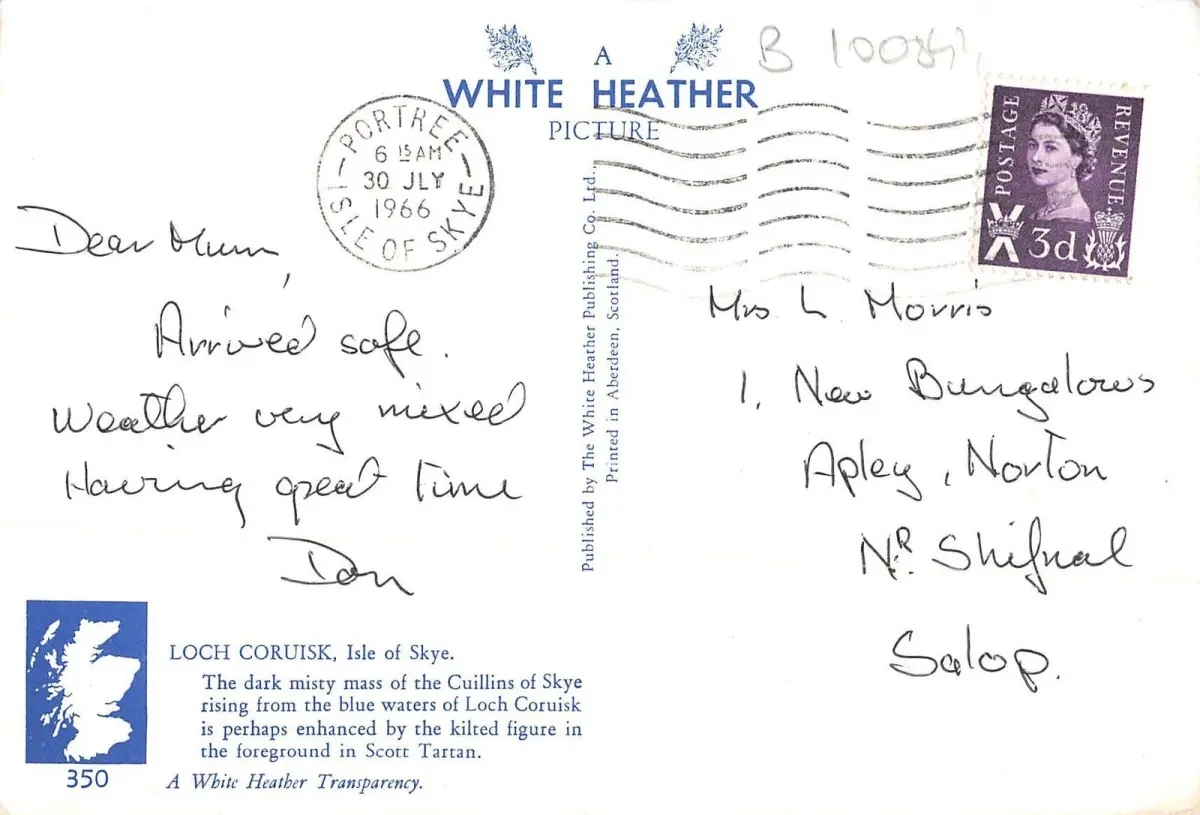 A
WHITE HEATHER
PICTURE
PORTREE
6 15 AM
30 JLY
1966
ISLE OF SKYE
POSTAGE
REVENUE
3d
Dear Mum,
Arrived safe.
Weather very mixed
Having great time
Don
Published by The White Heather Publishing Co. Ltd.,
Printed in Aberdeen, Scotland.
Mrs L Morris
1, New Bungalows
Apley, Norton
NR. Shifnal
Salop.
350
LOCH CORUISK, Isle of Skye.
The dark misty mass of the Cuillins of Skye
rising from the blue waters of Loch Coruisk
is perhaps enhanced by the kilted figure in
the foreground in Scott Tartan.
A White Heather Transparency.